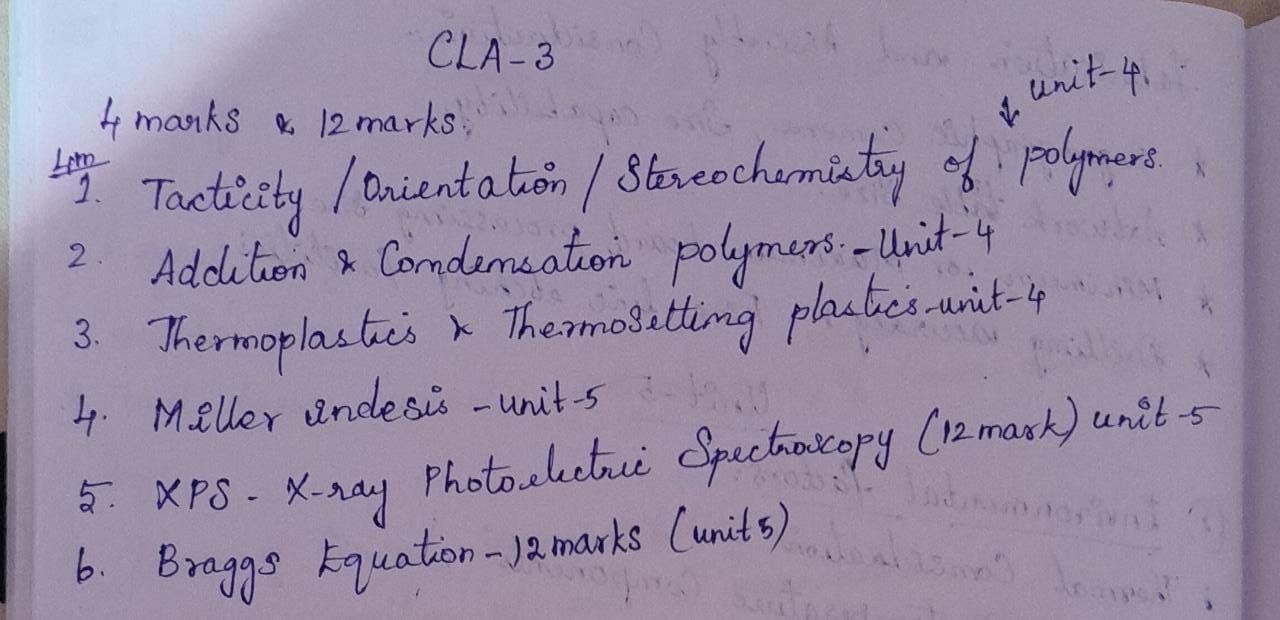 CLA-3
↓ unit-4.
4 marks & 12 marks:
4m
1. Tacticity / Orientation / Stereochemistry of polymers.
2. Addition & Condensation polymers. - Unit-4
3. Thermoplastics & Thermosetting plastics-unit-4
4. Miller indesis - unit-5
5. XPS - X-ray Photoelectric Spectroscopy (12 mark) unit-5
6. Braggs Equation - 12 marks (unit 5)